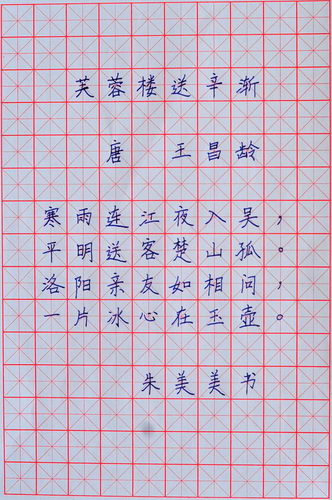 芙蓉楼送辛渐
唐 王昌龄
寒雨连江夜入吴，
平明送客楚山孤。
洛阳亲友如相问，
一片冰心在玉壶。
朱美美书